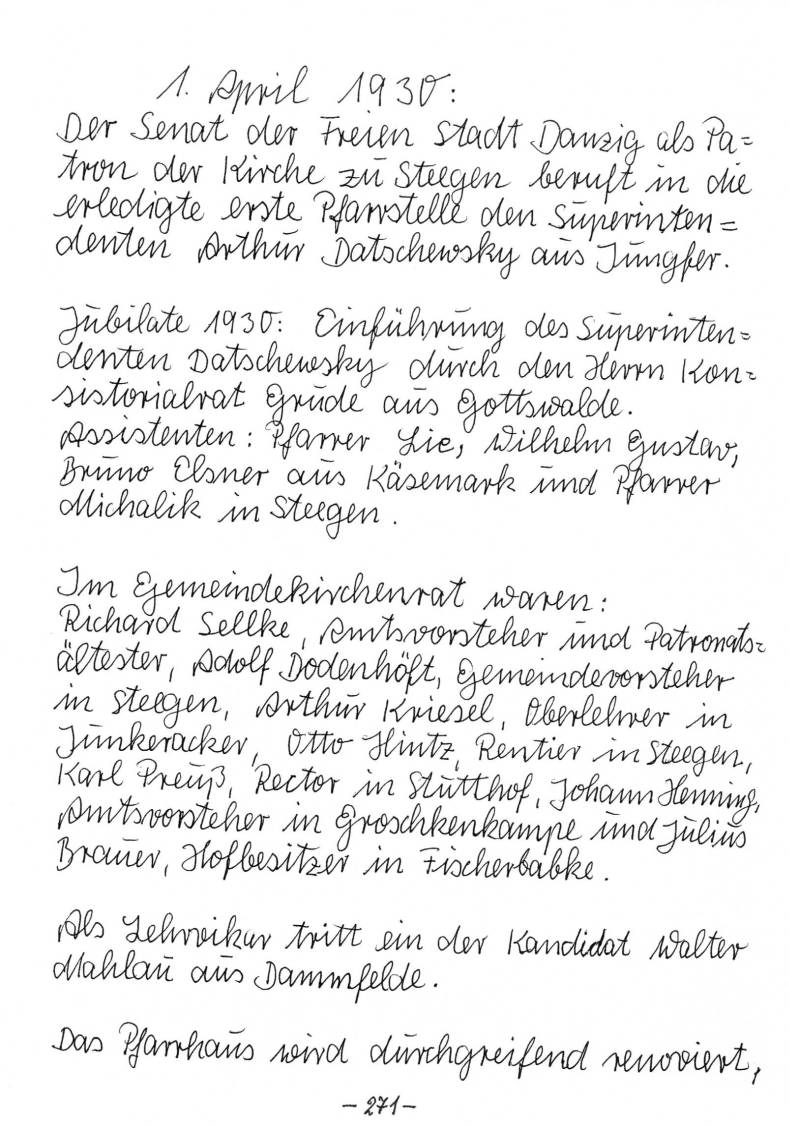 1. April 1930:
Der Senat der Freien Stadt Danzig als Pa=
tron der Kirche zu Steegen beruft in die
erledigte erste Pfarrstelle den Superinten=
denten Arthur Datschewsky aus Jungfer.
Jubilate 1930: Einführung des Superinten=
denten Datschewsky durch den Herrn Kon=
sistorialrat Grude aus Gottswalde.
Assistenten: Pfarrer Lic, Wilhelm Gustav,
Bruno Elsner aus Käsemark und Pfarrer
Michalik in Steegen.
Im Gemeindekirchenrat waren:
Richard Sellke, Amtsvorsteher und Patronats=
ältester, Adolf Dodenhöft, Gemeindevorsteher
in Steegen, Arthur Kriesel, Oberlehrer in
Junkeracker, Otto Hintz, Rentier in Steegen,
Karl Preuß, Rector in Stutthof, Johann Henning,
Amtsvorsteher in Groschkenkampe und Julius
Brauer, Hofbesitzer in Fischerbabke.
Als Lehrvikar tritt ein der Kandidat Walter
Mahlau aus Dammfelde.
Das Pfarrhaus wird durchgreifend renoviert,
- 271 -